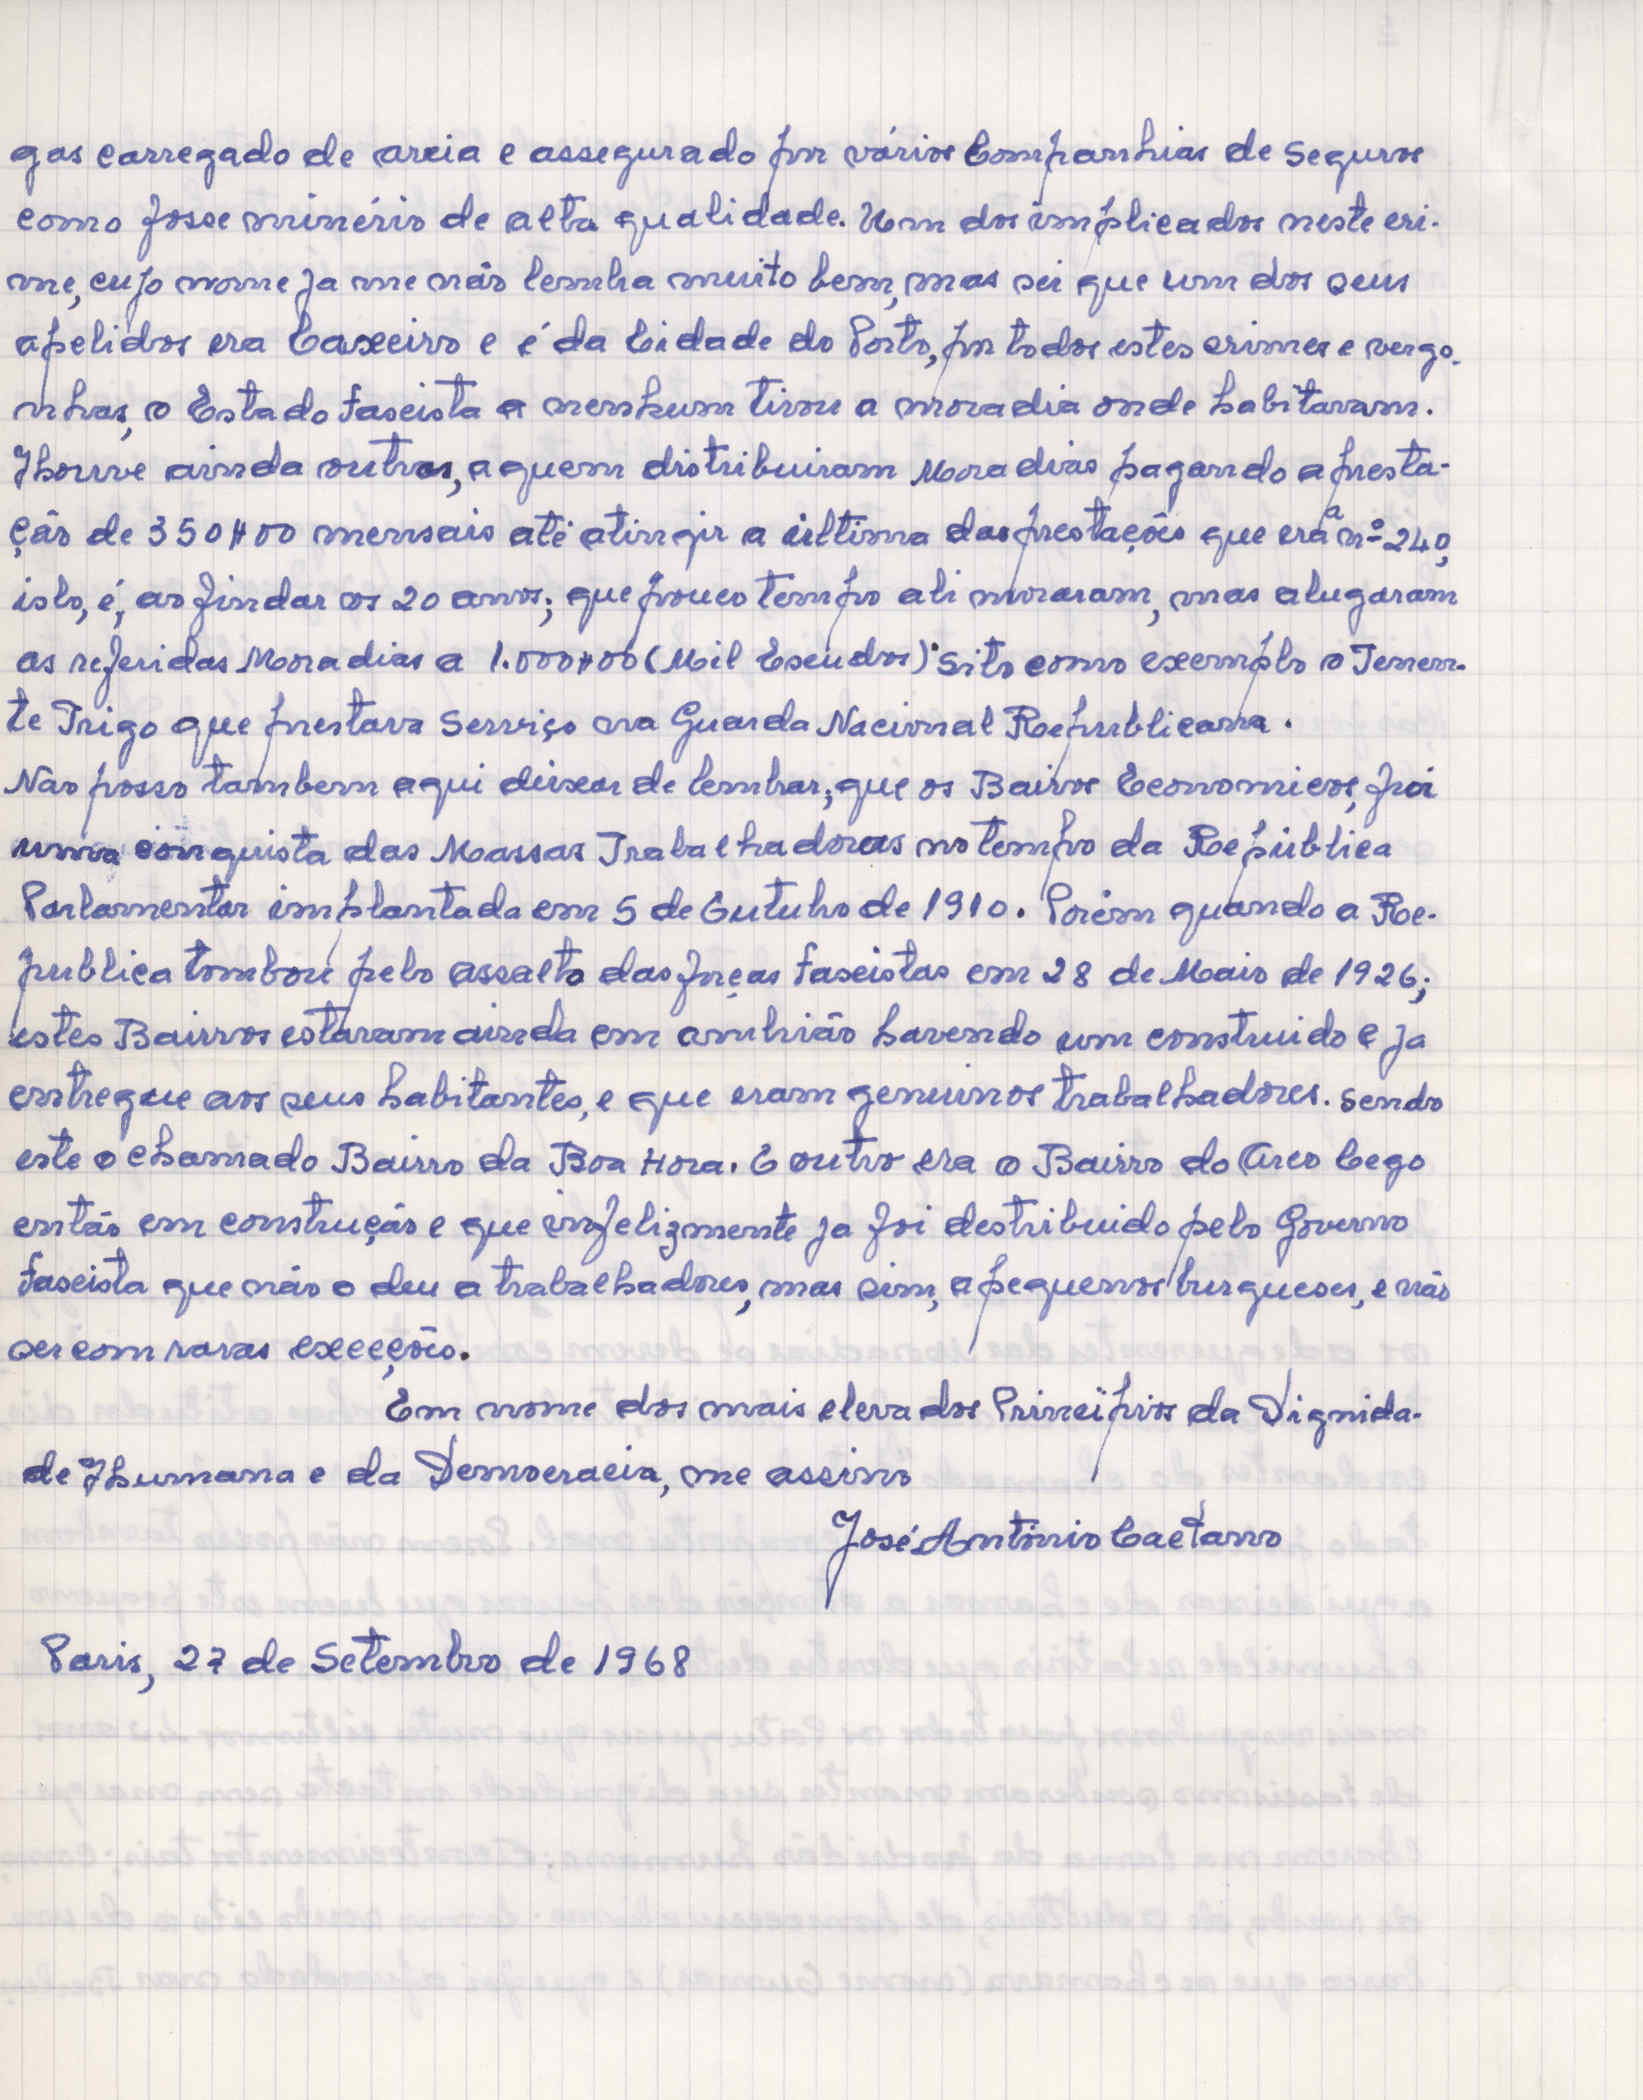 gas carregado de areia e assegurado por várias Companhias de Seguros
como fosse minério de alta qualidade. Um dos implicados neste cri-
me, cujo nome ja me não lembra muito bem, mas sei que um dos seus
apelidos era Caxeiro e é da Cidade do Porto, por todos estes crimes e vergo-
nhas, o Estado fascista a nenhum tirou a moradia onde habitavam.
Houve ainda outros, a quem distribuiram Moradias pagando a presta-
ção de 350$00 mensais até atingir a última das prestações que era a nº 240,
isto, é, ao findar os 20 anos; que pouco tempo ali moraram, mas alugaram
as referidas Moradias a 1.000$00 (Mil Escudos). Sito como exemplo o Tenen-
te Trigo que prestava Serviço na Guarda Nacional Republicana.
Nao posso tambem aqui deixar de lembrar; que os Bairos Economicos, foi
uma conquista das Massas Trabalhadoras no tempo da República
Parlamentar implantada em 5 de Outubro de 1910. Porém quando a Re-
publica tombou pelo assalto das forças fascistas em 28 de Maio de 1926;
estes Bairros estavam ainda em ambrião havendo um construido e ja
entregue aos seus habitantes, e que eram genuinos trabalhadores. Sendo
este o chamado Bairro da Boa Hora. E outro era o Bairro do Arco Cego
então em construção e que infelizmente ja foi destribuido pelo Governo
fascista que não o deu a trabalhadores, mas sim, a pequenos burgueses, e não
ser com raras exceções.
Em nome dos mais elevados Princípios da Dignida-
de Humana e da Democracia, me assino
José António Caetano
Paris, 27 de Setembro de 1968